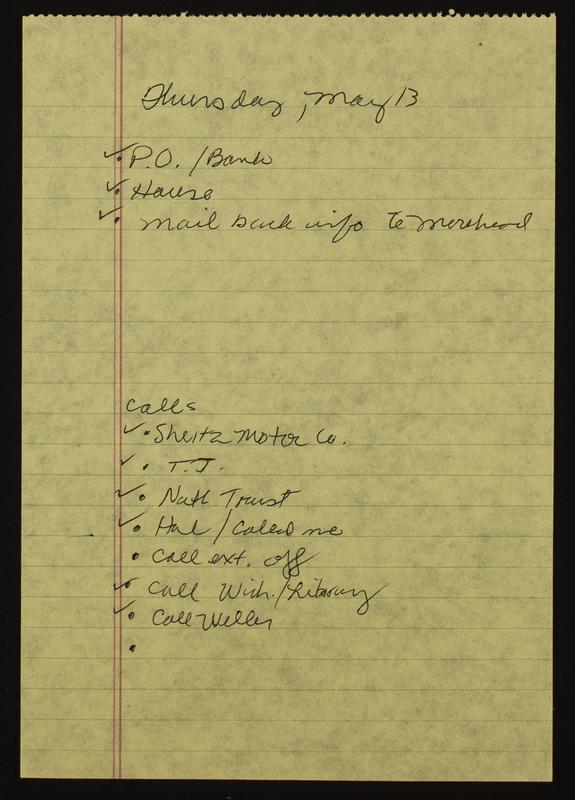 Thursday, May 13
✓• P.O. / Bank
✓• House
✓• Mail back info to Morehead
Calls
✓• Sheitz Motor Co.
✓• T.J.
✓• Natl. Trust
✓• Hal / Called me
• Call ext. off
✓• Call Wich. / Library
✓• Call Weller
•